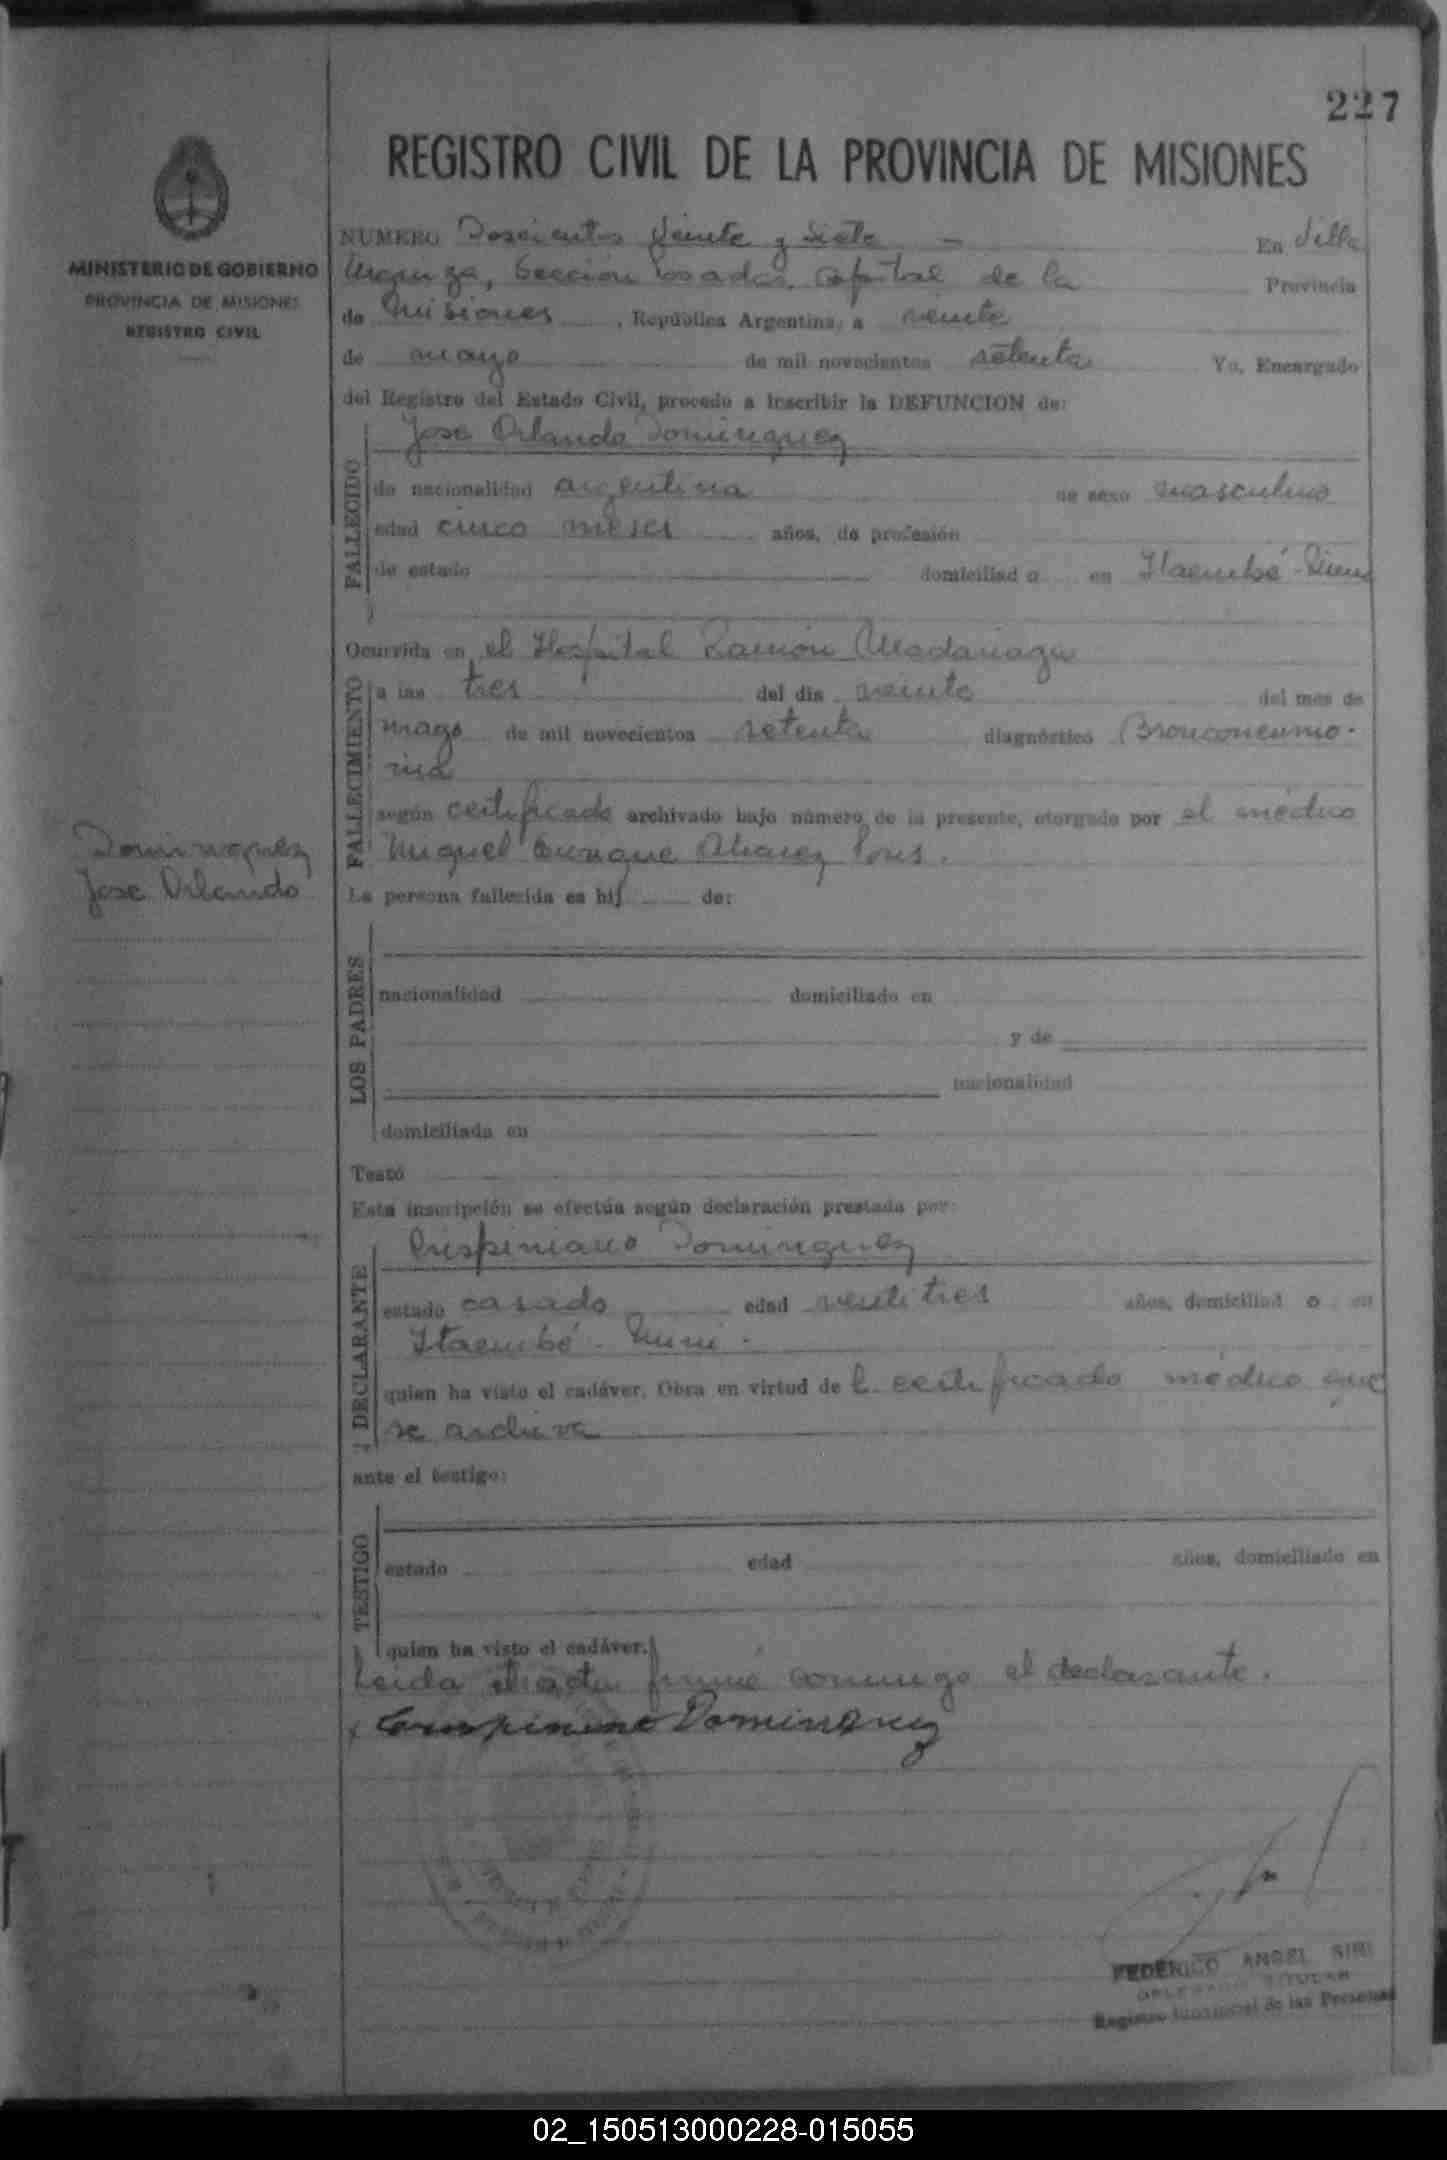 227
REGISTRO CIVIL DE LA PROVINCIA DE MISIONES
MINISTERIO DE GOBIERNO
PROVINCIA DE MISIONES
REGISTRO CIVIL
NUMERO Doscientos Veinte y Siete — En Villa
Urquiza, Sección Posadas, Capital de la Provincia
de Misiones, República Argentina, a veinte
de mayo de mil novecientos setenta Yo, Encargado
del Registro del Estado Civil, procedo a inscribir la DEFUNCION de:
Jose Orlando Dominguez
FALLECIDO
de nacionalidad argentina de sexo masculino
edad cinco meses años, de profesión
de estado domiciliado en Itaembé-Mini
Ocurrida en el Hospital Ramón Madariaga
FALLECIMIENTO
a las tres del dia veinte del mes de
mayo de mil novecientos setenta diagnóstico Bronconeumo-
nia
según certificado archivado bajo número de la presente, otorgado por el médico
Miguel Enrique Alvarez Pons.
Dominguez
Jose Orlando
La persona fallecida es hij de:
LOS PADRES
nacionalidad domiciliado en
y de
nacionalidad
domiciliada en
Testó
Esta inscripción se efectúa según declaración prestada por:
Crispiniano Dominguez
DECLARANTE
estado casado edad veintitres años, domiciliado en
Itaembé-Mini.
quien ha visto el cadáver. Obra en virtud del certificado médico que
se archiva
ante el testigo:
TESTIGO
estado edad años, domiciliado en
quien ha visto el cadáver.
Leida el acta firmó conmigo el declarante.
Crispiniano Dominguez
FEDERICO ANGEL SIRI
DELEGADO TITULAR
Registro Provincial de las Personas
02_150513000228-015055